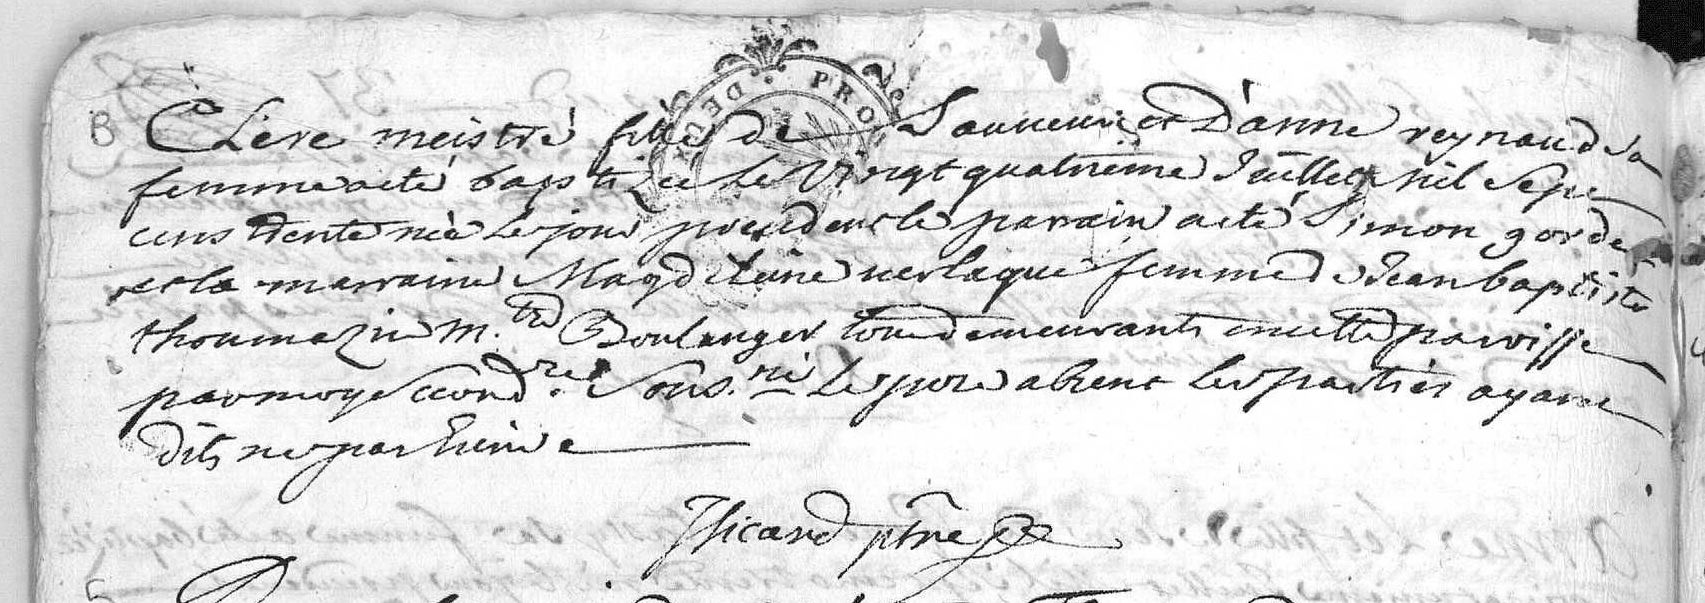 B
Clere meistre fille de Sauveur et D'anne reynaud sa
femme a eté baptizée le vingt quatrieme Juillet mil sept
cens trente née le jour precedent le parrain a eté Simon gorde
et la marraine Magdeleine verlaque femme de Jean baptiste
thoumazin m.tre Boulanger tous demeurants en cette paroisse
par moy second.re sous.né le pere absent les parties ayant
dits ne pas Ecrire
Sicard ptre
DE PRO